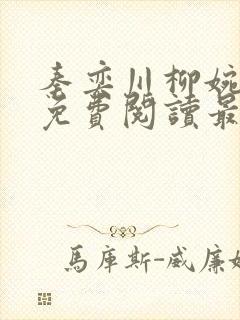 秦奕川柳婉
免費閱讀最
馬庫斯-威廉